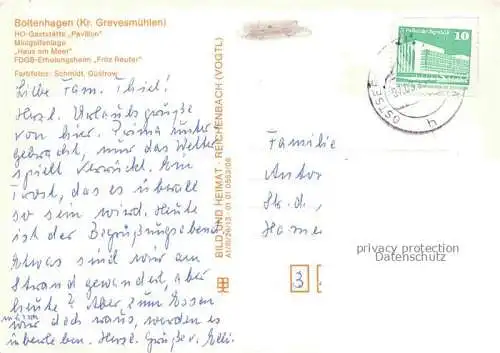 Boltenhagen (Kr. Grevesmühlen)
HO-Gaststätte „Pavillon"
Minigolfanlage
„Haus am Meer"
FDGB-Erholungsheim „Fritz Reuter"
Farbfotos: Schmidt, Güstrow
Liebe Fam. Thiel!
Herzl. Urlaubsgrüße
von hier. Prima unter-
gebracht, nur das Wetter
spielt verrückt. Ein
Trost, das es überall
so sein wird. Heute
ist der Begrüßungsabend.
Etwas sind wir am
Strand gewandert, aber
heute? Aber zum Essen
müssen wir doch raus, werden es
überleben. Herzl. Grüße v. Elli.
BILD UND HEIMAT · REICHENBACH (VOGTL)
A1/III/26/13 · 01 01 0553/08
10
OSTSEE
Familie
Anton
Str. d.
Hamer
3
privacy protection
Datenschutz